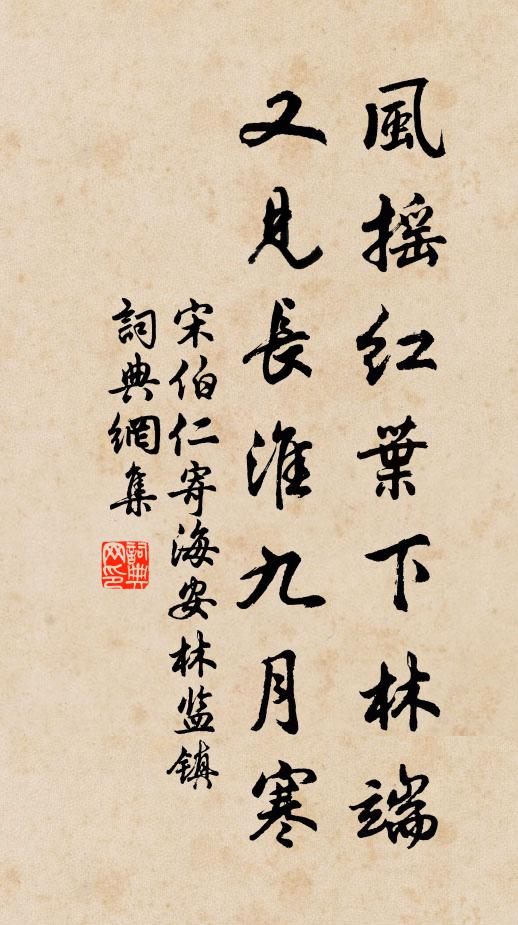 風搖红葉下林端
又見長淮九月寒
宋伯仁寄海安林监镇
詞典網集
詞典网印